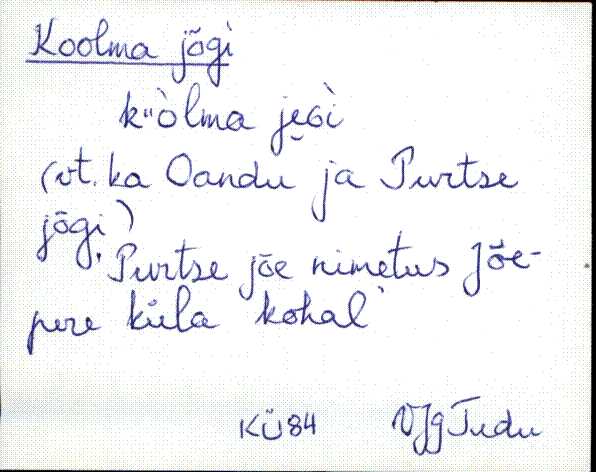 Koolma jõgi
k"òlma jẹɢì
(vt. ka Oandu ja Purtse
jõgi)
'Purtse jõe nimetus Jõe-
pere küla kohal'
KÜ84 VJg Tudu